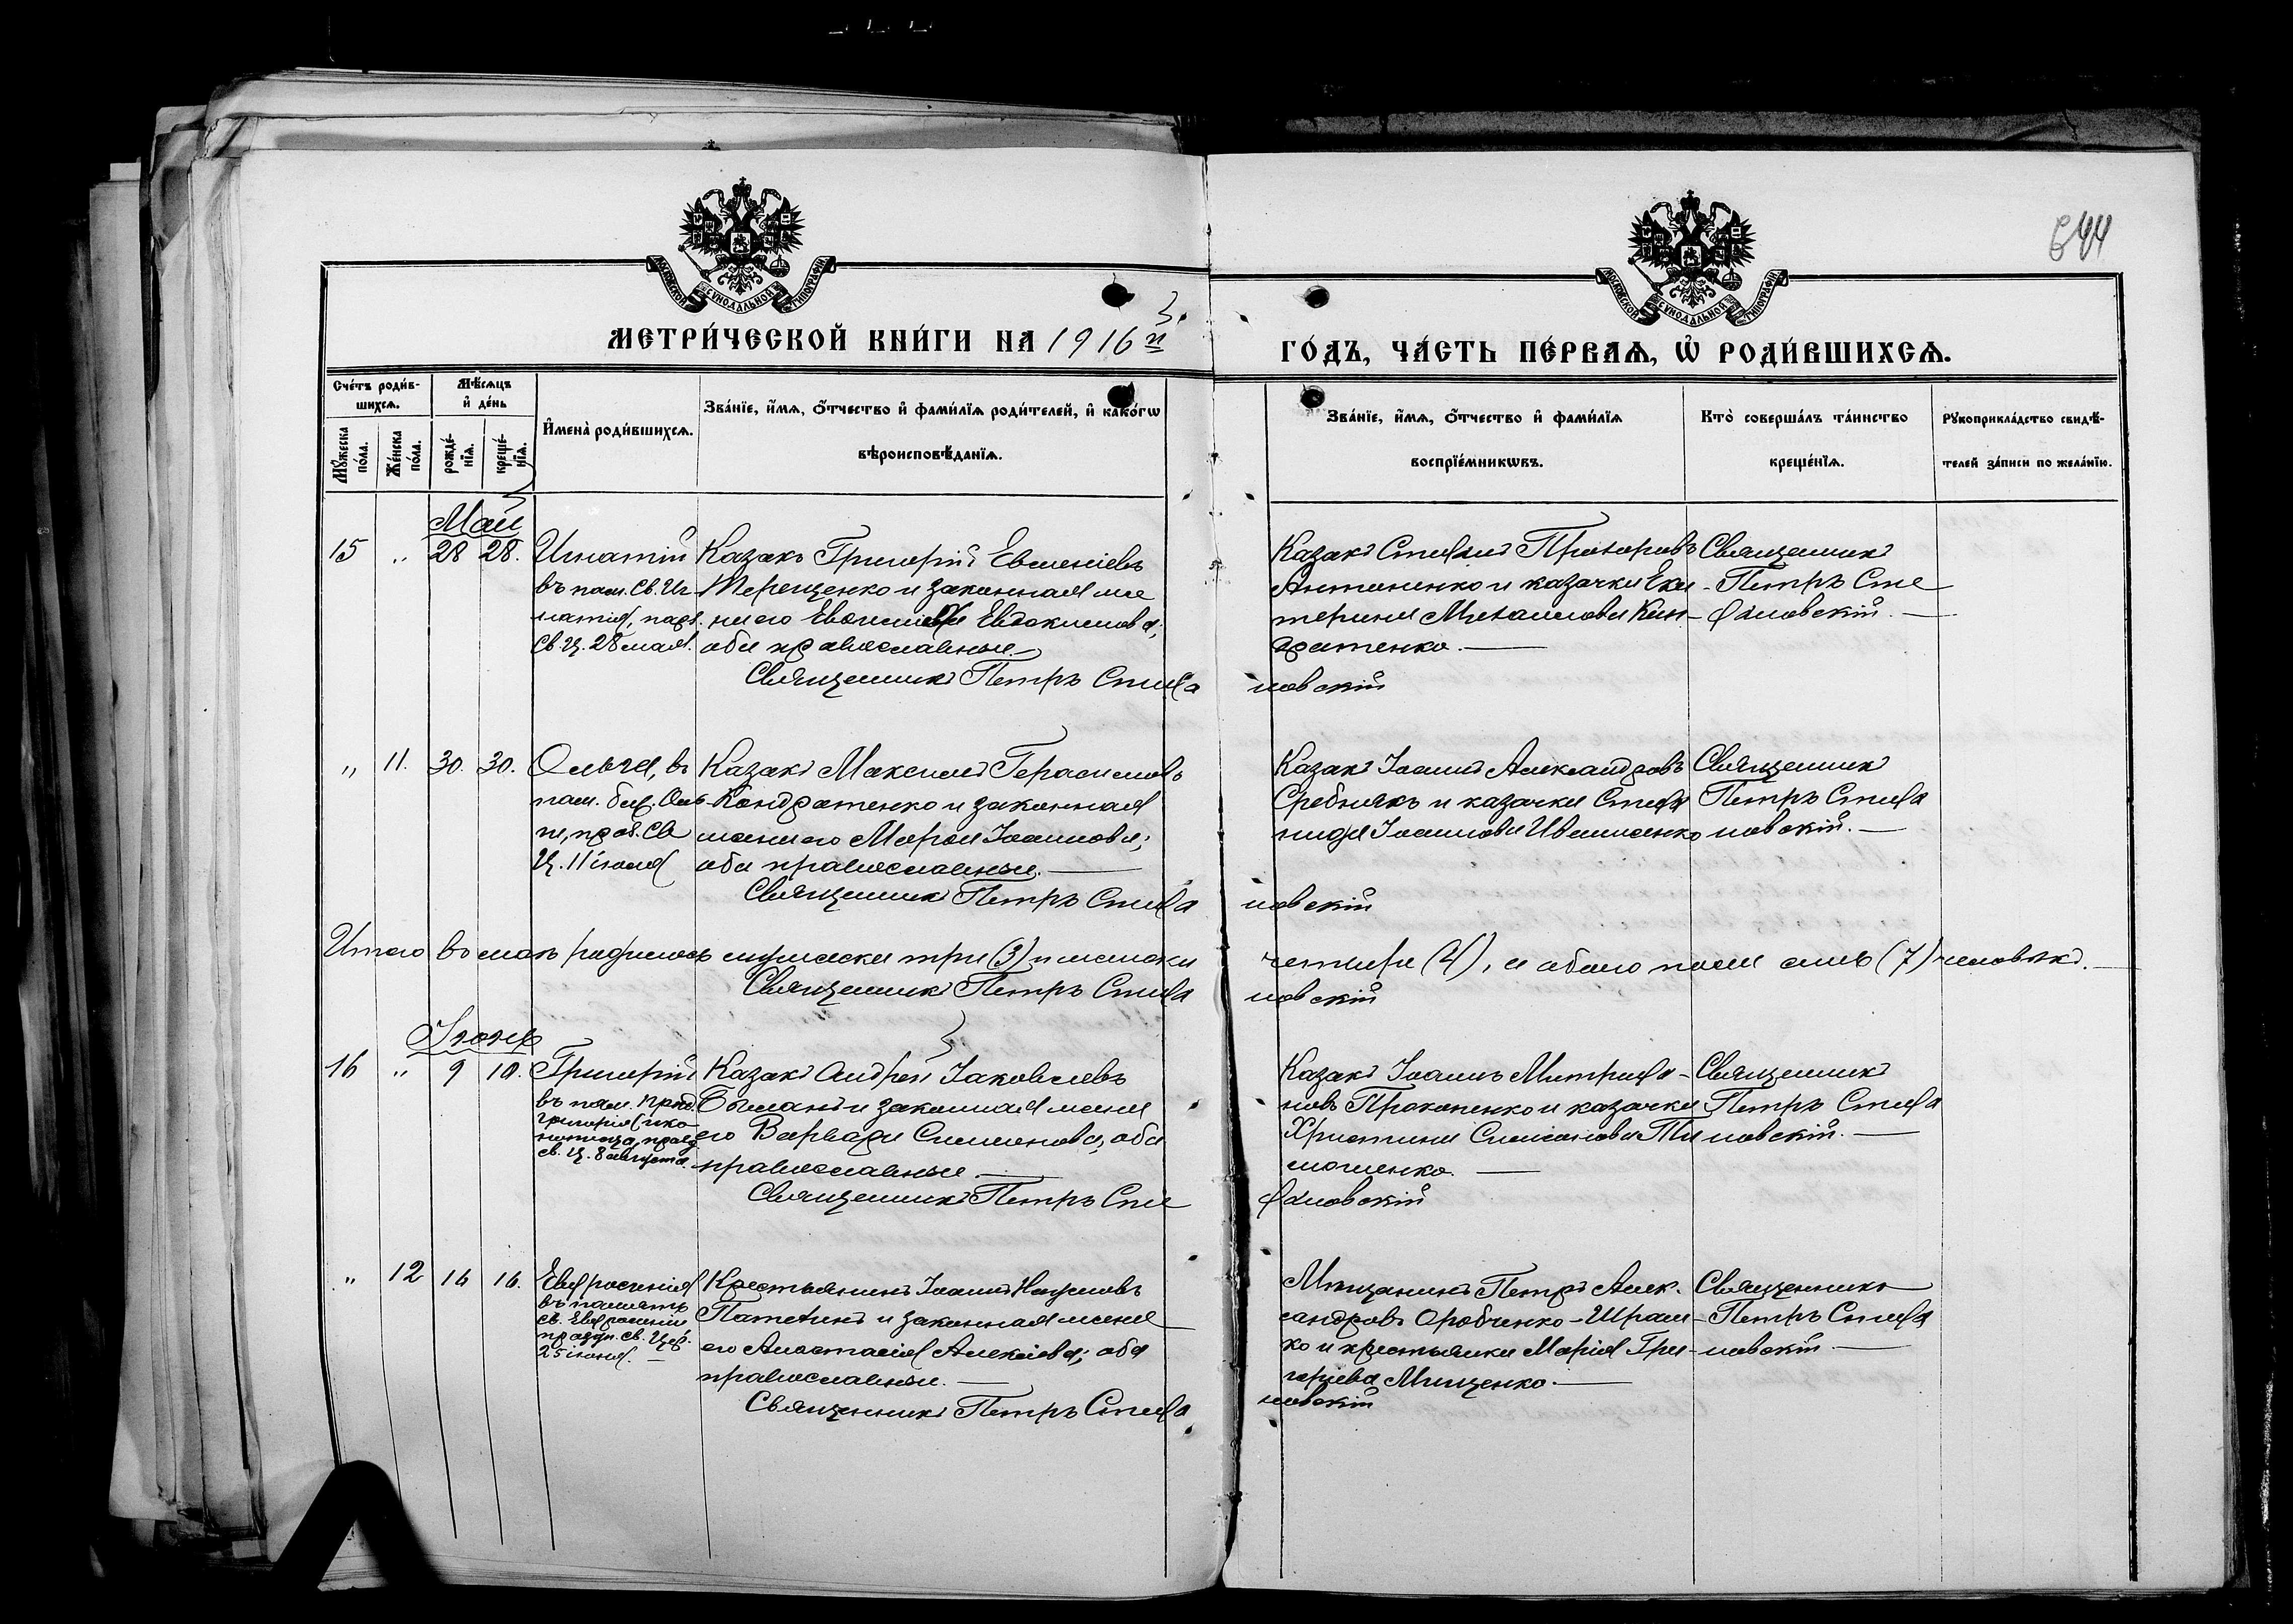 644
МОСКОВСКОЙ СѴНОДАЛЬНОЙ ТИПОГРАФІИ
МОСКОВСКОЙ СѴНОДАЛЬНОЙ ТИПОГРАФІИ
МЕТРИ́ЧЕСКОЙ КНИ́ГИ НА 1916 й
ГО́ДЪ, ЧА́СТЬ ПЕ́РВАѦ, Ѡ҆ РОДИ́ВШИХСѦ.
Сче́тъ роди́в-
шихсѧ.
Мѣ́сѧцъ
и҆ де́нь
Мꙋ́жеска
по́ла.
Же́нска
по́ла.
рожде́-
нїѧ.
креще́-
нїѧ.
И҆мена̀ роди́вшихсѧ.
Зва́нїе, и҆́мѧ, ѻ҆́тчество и҆ фами́лїѧ роди́телей, и҆ како́гѡ
вѣроисповѣ́данїѧ.
Зва́нїе, и҆́мѧ, ѻ҆́тчество и҆ фами́лїѧ
воспрїе́мникѡвъ.
Кто̀ соверша́лъ та́инство
креще́нїѧ.
Рꙋкоприкла́дство свидѣ́-
телей за́писи по жела́нїю.
Май
15 " 28 28.
Игнатій
въ пам. Св. Иг-
натія, празд.
Св. Ц. 28 мая.
Казакъ Григорій Евменіевъ
Терещенко и законная же
на его Евдокимова;
оба православные.
Священникъ Петръ Стефа
новскій
Казакъ Стефанъ Прохоровъ
Антоненко и казачка Ека-
терина Михаилова Кон-
дратенко.
Священникъ
Петръ Сте
фановскій.
" 11. 30. 30.
Ольга, въ
пам. бл. Оль-
ги, празд. Св
Ц. 11 іюля
Казакъ Максимъ Герасимовъ
Кондратенко и законная
жена его Марѳа Іоаннова;
оба православные.
Священникъ Петръ Стефа
новскій
Казакъ Іоаннъ Александровъ
Сребнякъ и казачка Стефа
нида Іоаннова Иващенко
Священникъ
Петръ Стефа
новскій.
Итого въ маѣ родилось мужска три (3) и женска
четыре (4), а обоего пола семь (7) человѣкъ.
Священникъ Петръ Стефа
новскій
Іюнь
16 " 9 10.
Григорій
въ пам. преп.
Григорія (ико-
нописца, празд
св. Ц. 8 августа.
Казакъ Андрей Іаковлевъ
и законная жена
его Варвара Симеонова, оба
православные.
Священникъ Петръ Сте
фановскій
Казакъ Іоаннъ Митрофа-
новъ Прокопенко и казачка
Христина Симеонова Ти
мошенко.
Священникъ
Петръ Стефа
новскій.
" 12 16 16.
Евфросинія
въ память
св. Евфросиніи
праздн. св. Цер.
25 іюня.
Крестьянинъ Іоаннъ Наумовъ
и законная жена
его Анастасія Алексіева; оба
православные.
Священникъ Петръ Стефа
новскій
Мѣщанинъ Петръ Алек-
сандровъ Оробченко-Шрам-
ко и крестьянка Марія Гри-
горіева Мищенко.
Священникъ
Петръ Стефа
новскій